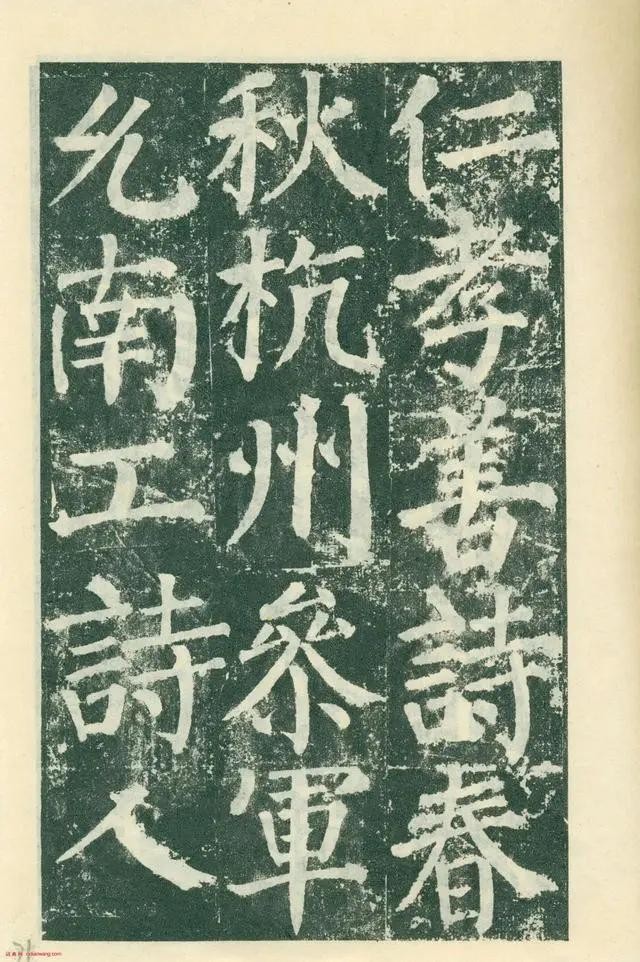 仁孝善詩春
秋杭州叅軍
允南工詩人
cidianwang.com